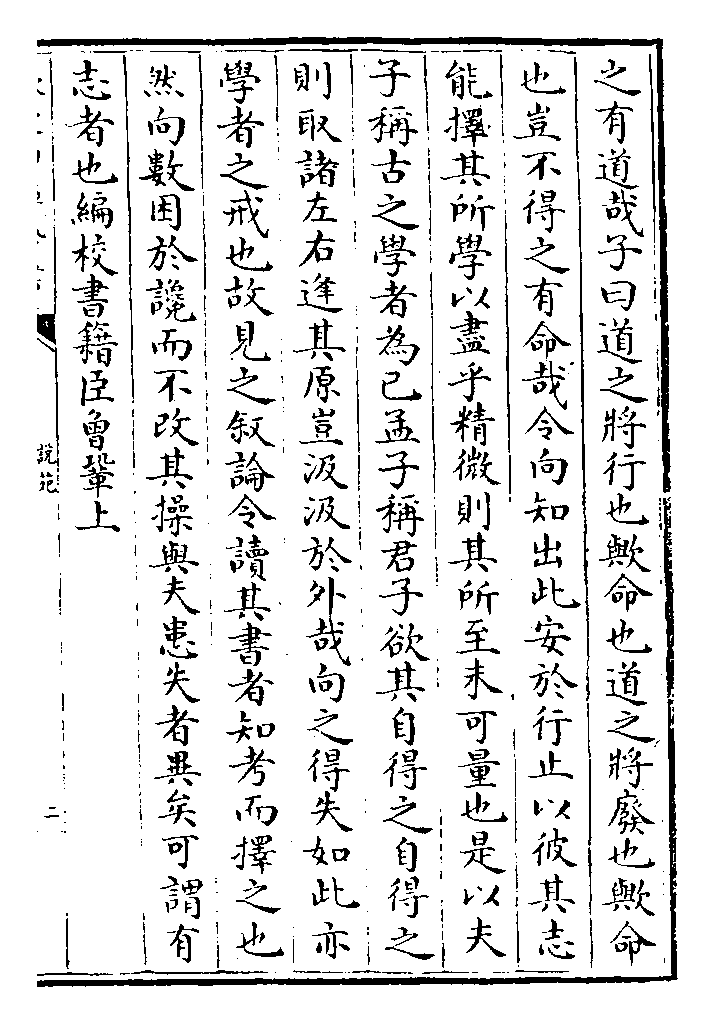 之有道哉子曰道之將行也歟命也道之將廢也歟命
也豈不得之有命哉令向知出此安於行止以彼其志
能擇其所學以盡乎精微則其所至未可量也是以夫
子稱古之學者為已孟子稱君子欲其自得之自得之
則取諸左右逢其原豈汲汲於外哉向之得失如此亦
學者之戒也故見之叙論令讀其書者知考而擇之也
然向數困於讒而不改其操與夫患失者異矣可謂有
志者也編校書籍臣曾鞏上
說苑
二